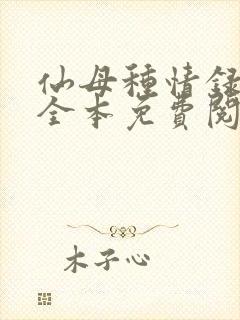 仙母種情録
全本免費閱
木子心